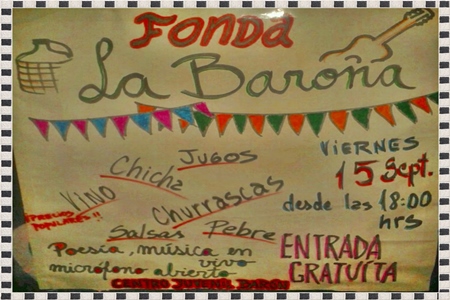 FONDA
La Baroña
VIERNES
15 Sept.
desde las 18:00
hrs
Jugos
Chicha
Vino
Churrascas
Salsas Pebre
PRECIOS
POPULARES!!
Poesía, música en
vivo
micrófono abierto
ENTRADA
GRATUITA
CENTRO JUVENIL